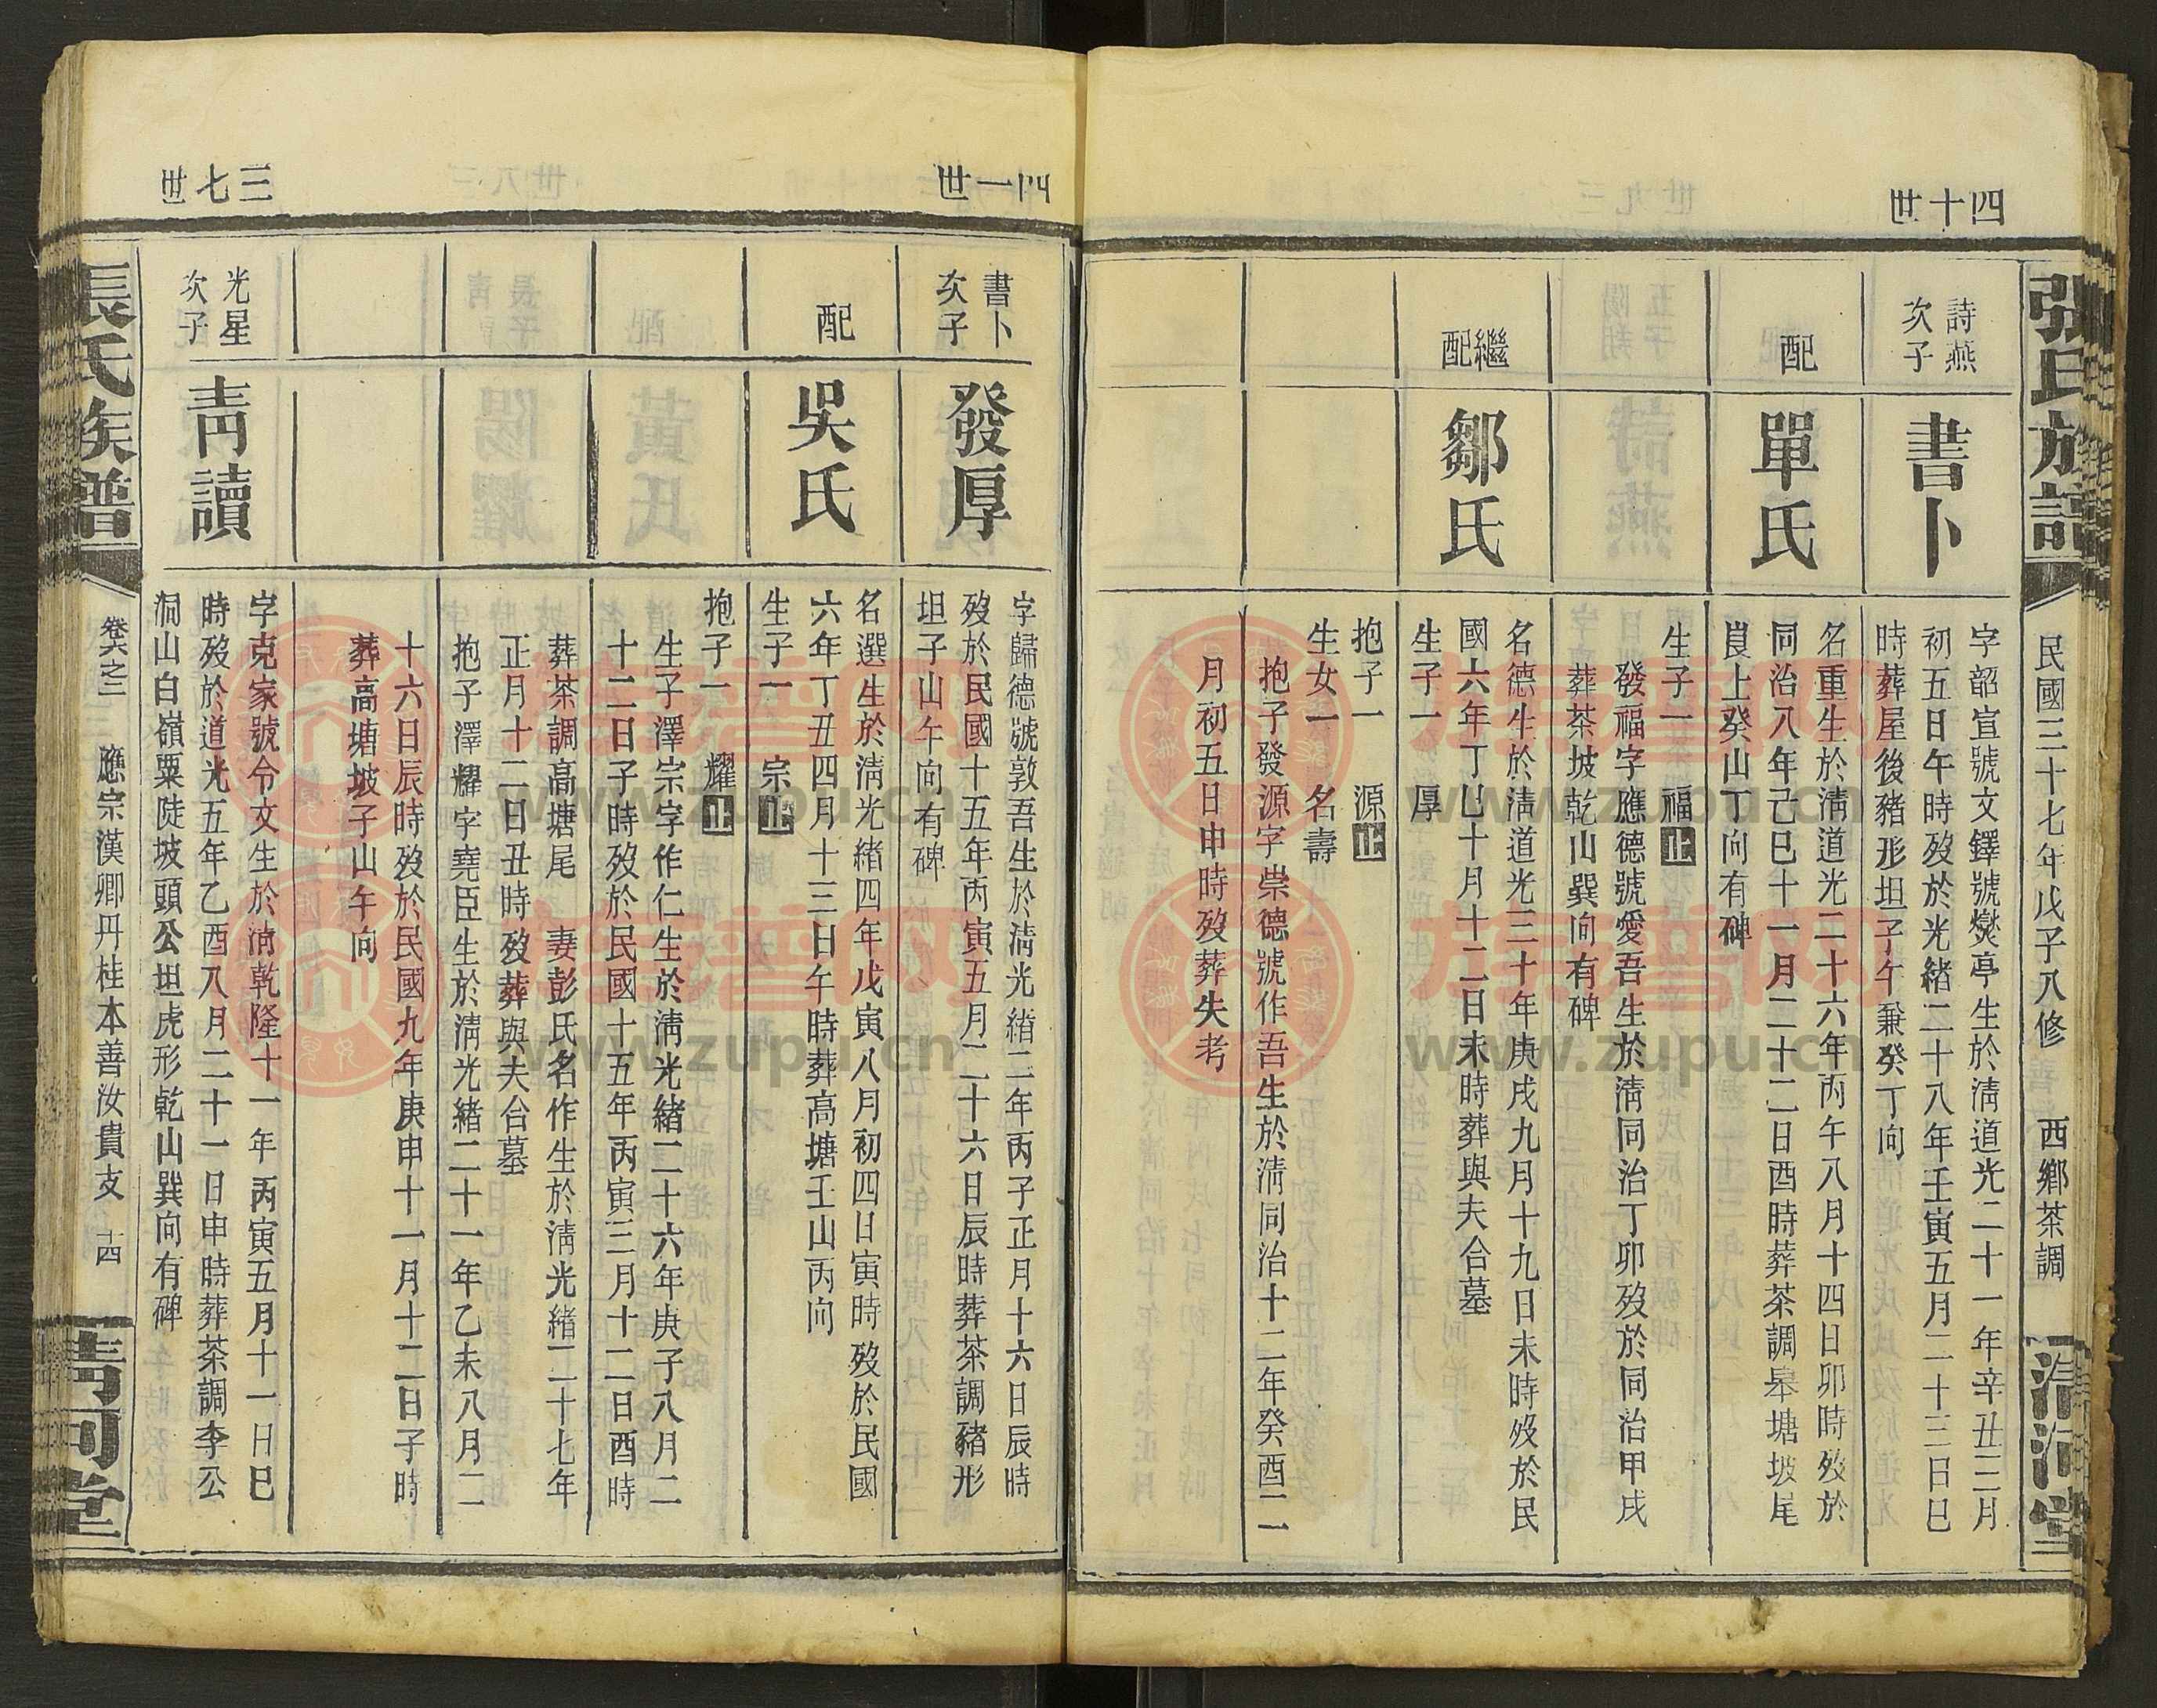 張氏族譜
民國三十七年戊子八修
西鄉茶調
清河堂
四十世
詩燕
次子
書卜
字韶宜號文鐸號爕亭生於淸道光二十一年辛丑三月
初五日午時歿於光緒二十八年壬寅五月二十三日巳
時葬屋後豬形坦子午兼癸丁向
配
單氏
名重生於淸道光二十六年丙午八月十四日卯時歿於
同治八年己巳十一月二十二日酉時葬茶調皋塘坡尾
艮上癸山丁向有碑
生子一　福止
發福字應德號愛吾生於淸同治丁卯歿於同治甲戌
葬茶坡乾山巽向有碑
繼配
鄒氏
名德生於淸道光三十年庚戌九月十九日未時歿於民
國六年丁巳十月十二日未時葬與夫合墓
生子一　厚
抱子一　源止
生女一　名壽
抱子發源字崇德號作吾生於淸同治十二年癸酉二
月初五日申時歿葬失考
四一世
書卜
次子
發厚
字歸德號敦吾生於淸光緒二年丙子正月十六日辰時
歿於民國十五年丙寅五月二十六日辰時葬茶調豬形
坦子山午向有碑
配
吳氏
名選生於淸光緒四年戊寅八月初四日寅時歿於民國
六年丁丑四月十三日午時葬高塘壬山丙向
生子一　宗止
抱子一　耀止
生子澤宗字作仁生於淸光緒二十六年庚子八月二
十二日子時歿於民國十五年丙寅三月十二日酉時
葬茶調高塘尾　妻彭氏名作生於淸光緒二十七年
正月十二日丑時歿葬與夫合墓
抱子澤耀字堯臣生於淸光緒二十一年乙未八月二
十六日辰時歿於民國九年庚申十一月十二日子時
葬高塘坡子山午向
三七世
光星
次子
靑讀
字克家號令文生於淸乾隆十一年丙寅五月十一日巳
時歿於道光五年乙酉八月二十一日申時葬茶調李公
洞山白嶺粟陡坡頭公坦虎形乾山巽向有碑
張氏族譜
卷六之二
應宗漢卿丹桂本善汝貴支
十四
靑河堂
族譜网
www.zupu.cn
族譜网
www.zupu.cn
族譜网
www.zupu.cn
族譜网
www.zupu.cn